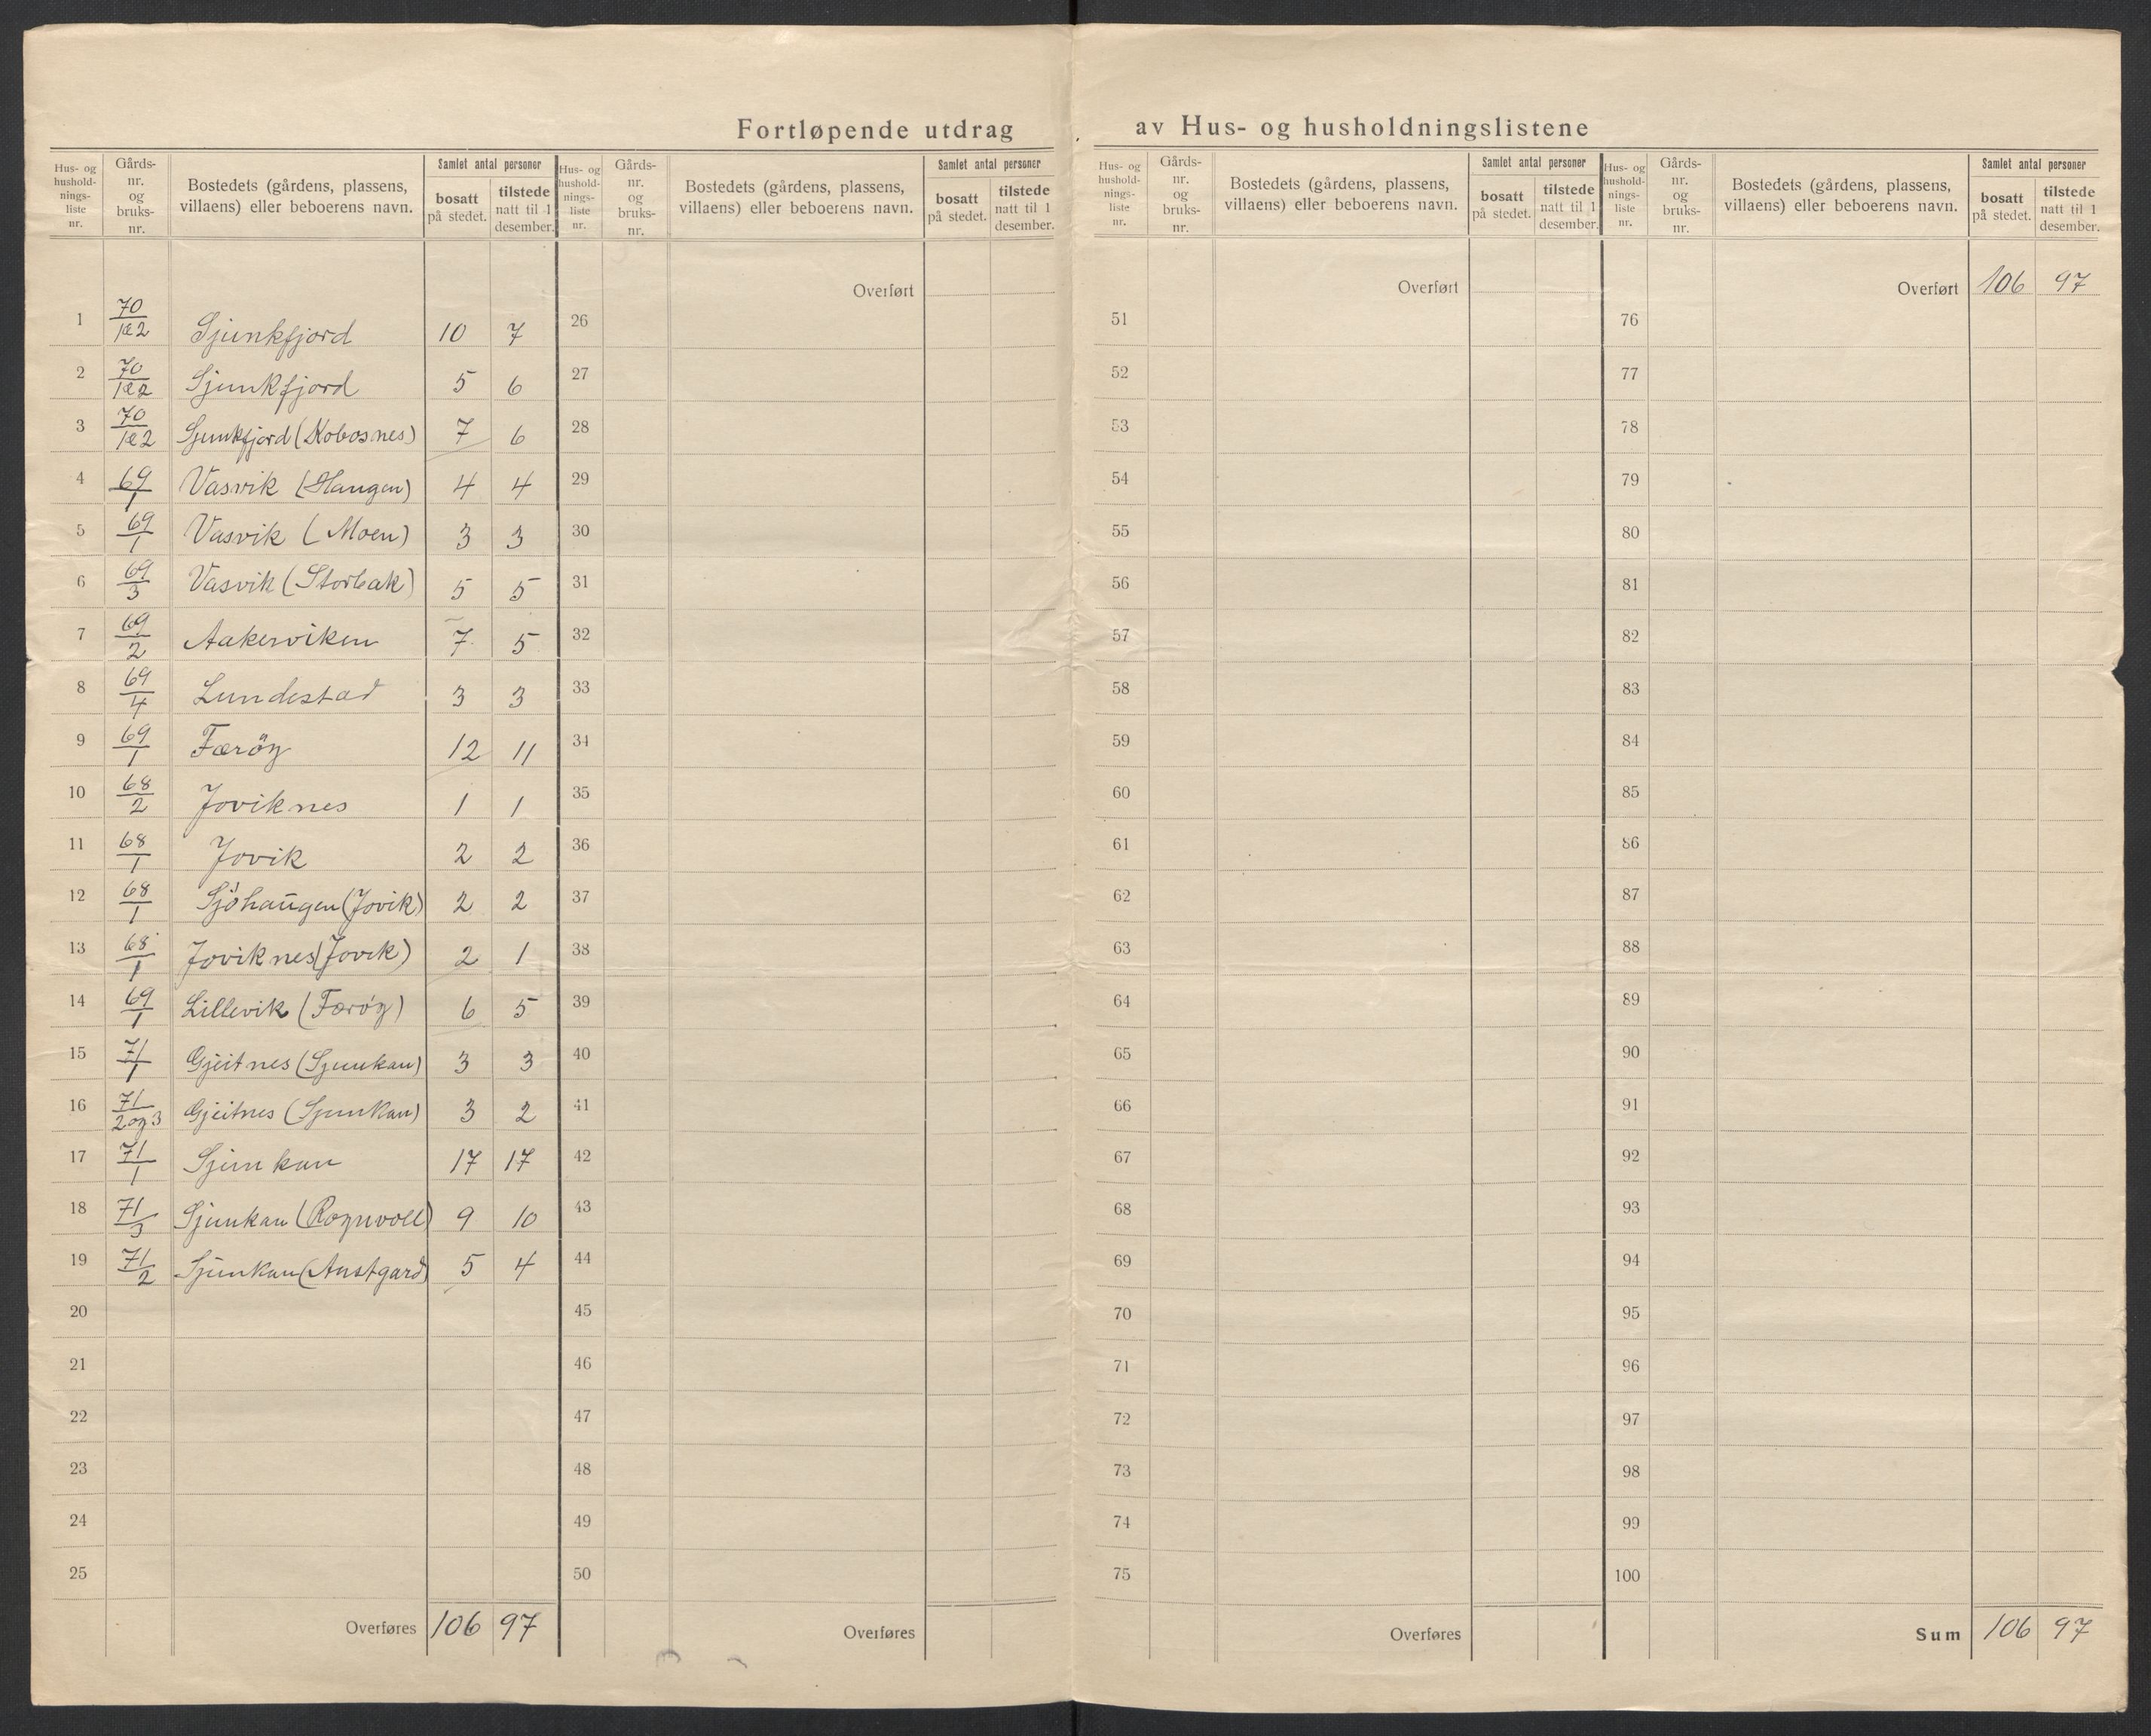 Fortløpende utdrag av Hus- og husholdningslistene
Hus- og hushold-nings-liste nr. | Gårds-nr. og bruks-nr. | Bostedets (gårdens, plassens, villaens) eller beboerens navn. | Samlet antal personer: bosatt på stedet. | tilstede natt til 1 desember.
1 70/1&2 Sjunkfjord 10 7
2 70/1&2 Sjunkfjord 5 6
3 70/1&2 Sjunkfjord (Kobosnes) 7 6
4 69/1 Vasvik (Haugen) 4 4
5 69/1 Vasvik (Moen) 3 3
6 69/3 Vasvik (Storbak) 5 5
7 69/2 Aakerviken 7 5
8 69/4 Lundestad 3 3
9 69/1 Færöy 12 11
10 68/2 Joviknes 1 1
11 68/1 Jovik 2 2
12 68/1 Sjöhaugen (Jovik) 2 2
13 68/1 Joviknes (Jovik) 2 1
14 69/1 Lillevik (Færöy) 6 5
15 71/1 Gjeitnes (Sjunkan) 3 3
16 71/2og3 Gjeitnes (Sjunkan) 3 2
17 71/1 Sjunkan 17 17
18 71/3 Sjunkan (Rognvoll) 9 10
19 71/2 Sjunkan (Austgard) 5 4
20
21
22
23
24
25
Overføres 106 97
Hus- og hushold-nings-liste nr. | Gårds-nr. og bruks-nr. | Bostedets (gårdens, plassens, villaens) eller beboerens navn. | Samlet antal personer: bosatt på stedet. | tilstede natt til 1 desember.
Overført
26
27
28
29
30
31
32
33
34
35
36
37
38
39
40
41
42
43
44
45
46
47
48
49
50
Overføres
Hus- og hushold-nings-liste nr. | Gårds-nr. og bruks-nr. | Bostedets (gårdens, plassens, villaens) eller beboerens navn. | Samlet antal personer: bosatt på stedet. | tilstede natt til 1 desember.
Overført
51
52
53
54
55
56
57
58
59
60
61
62
63
64
65
66
67
68
69
70
71
72
73
74
75
Overføres
Hus- og hushold-nings-liste nr. | Gårds-nr. og bruks-nr. | Bostedets (gårdens, plassens, villaens) eller beboerens navn. | Samlet antal personer: bosatt på stedet. | tilstede natt til 1 desember.
Overført 106 97
76
77
78
79
80
81
82
83
84
85
86
87
88
89
90
91
92
93
94
95
96
97
98
99
100
Sum 106 97